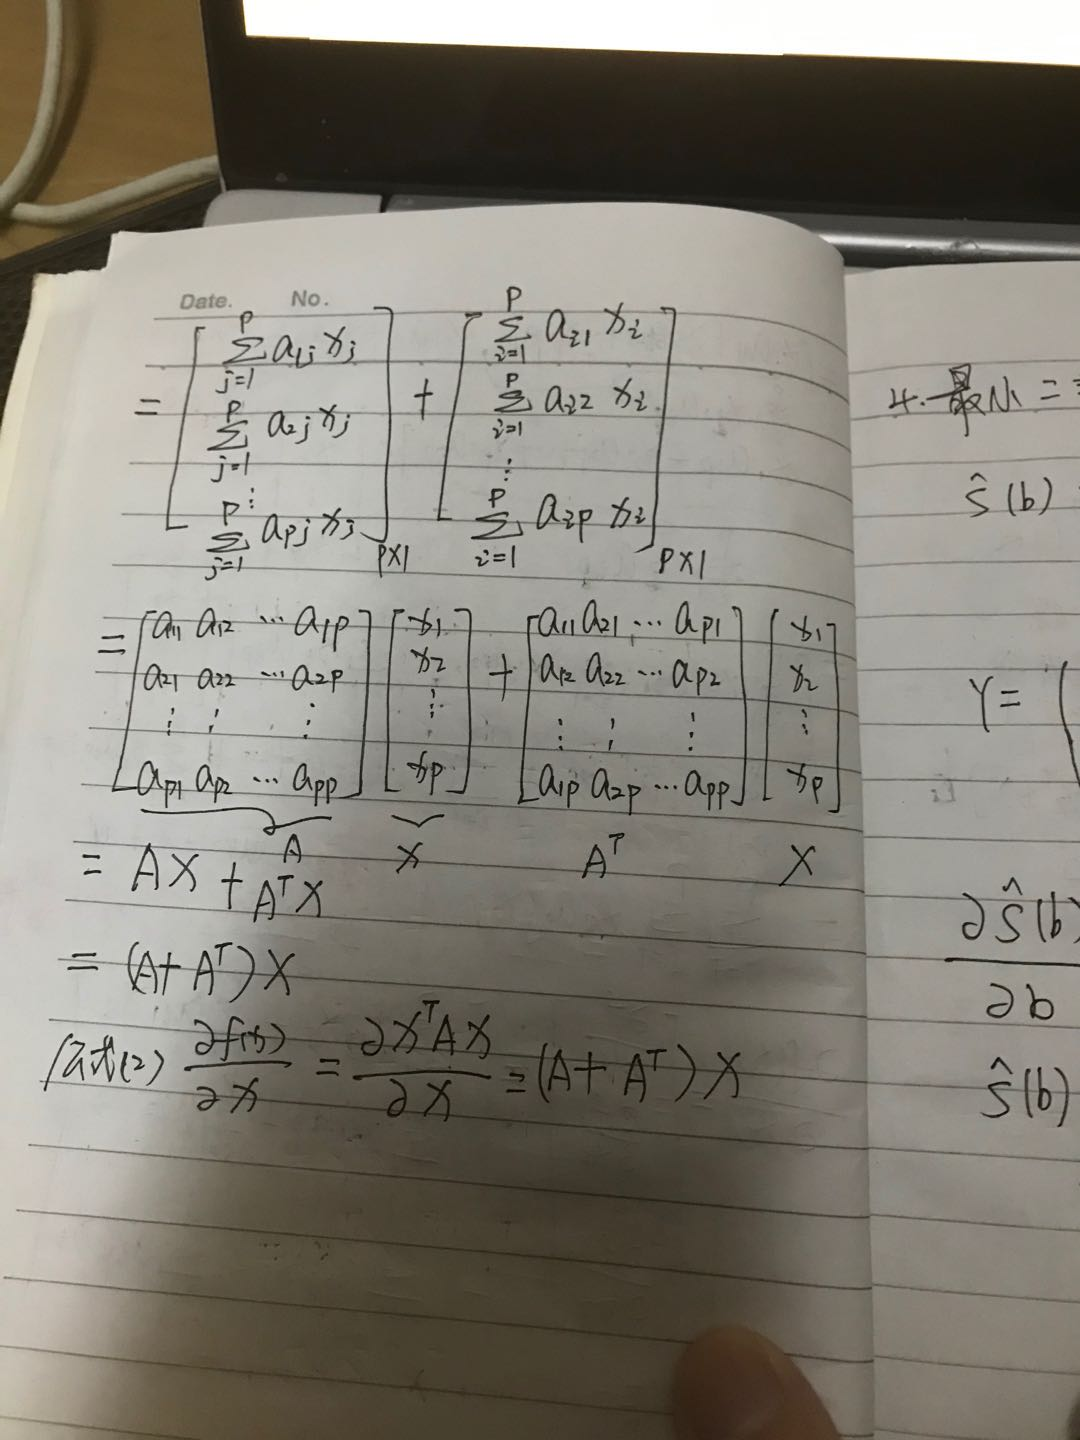 Date. No.
= [ \sum_{j=1}^{P} a_{1j} x_j ; \sum_{j=1}^{P} a_{2j} x_j ; ⋮ ; \sum_{j=1}^{P} a_{pj} x_j ]_{P×1} + [ \sum_{i=1}^{P} a_{i1} x_i ; \sum_{i=1}^{P} a_{i2} x_i ; ⋮ ; \sum_{i=1}^{P} a_{ip} x_i ]_{P×1}
= [ a_{11} a_{12} ⋯ a_{1p} ; a_{21} a_{22} ⋯ a_{2p} ; ⋮ ⋮ ⋮ ; a_{p1} a_{p2} ⋯ a_{pp} ] [ x_1 ; x_2 ; ⋮ ; x_p ] + [ a_{11} a_{21} ⋯ a_{p1} ; a_{12} a_{22} ⋯ a_{p2} ; ⋮ ⋮ ⋮ ; a_{1p} a_{2p} ⋯ a_{pp} ] [ x_1 ; x_2 ; ⋮ ; x_p ]
A x A^T X
= AX + A^T X
= (A+A^T)X
公式(2) ∂f(x)/∂x = ∂x^T A x/∂x = (A+A^T)X
4. 最小=
ŝ(b)
Y=
∂ŝ(b)/∂b
ŝ(b)